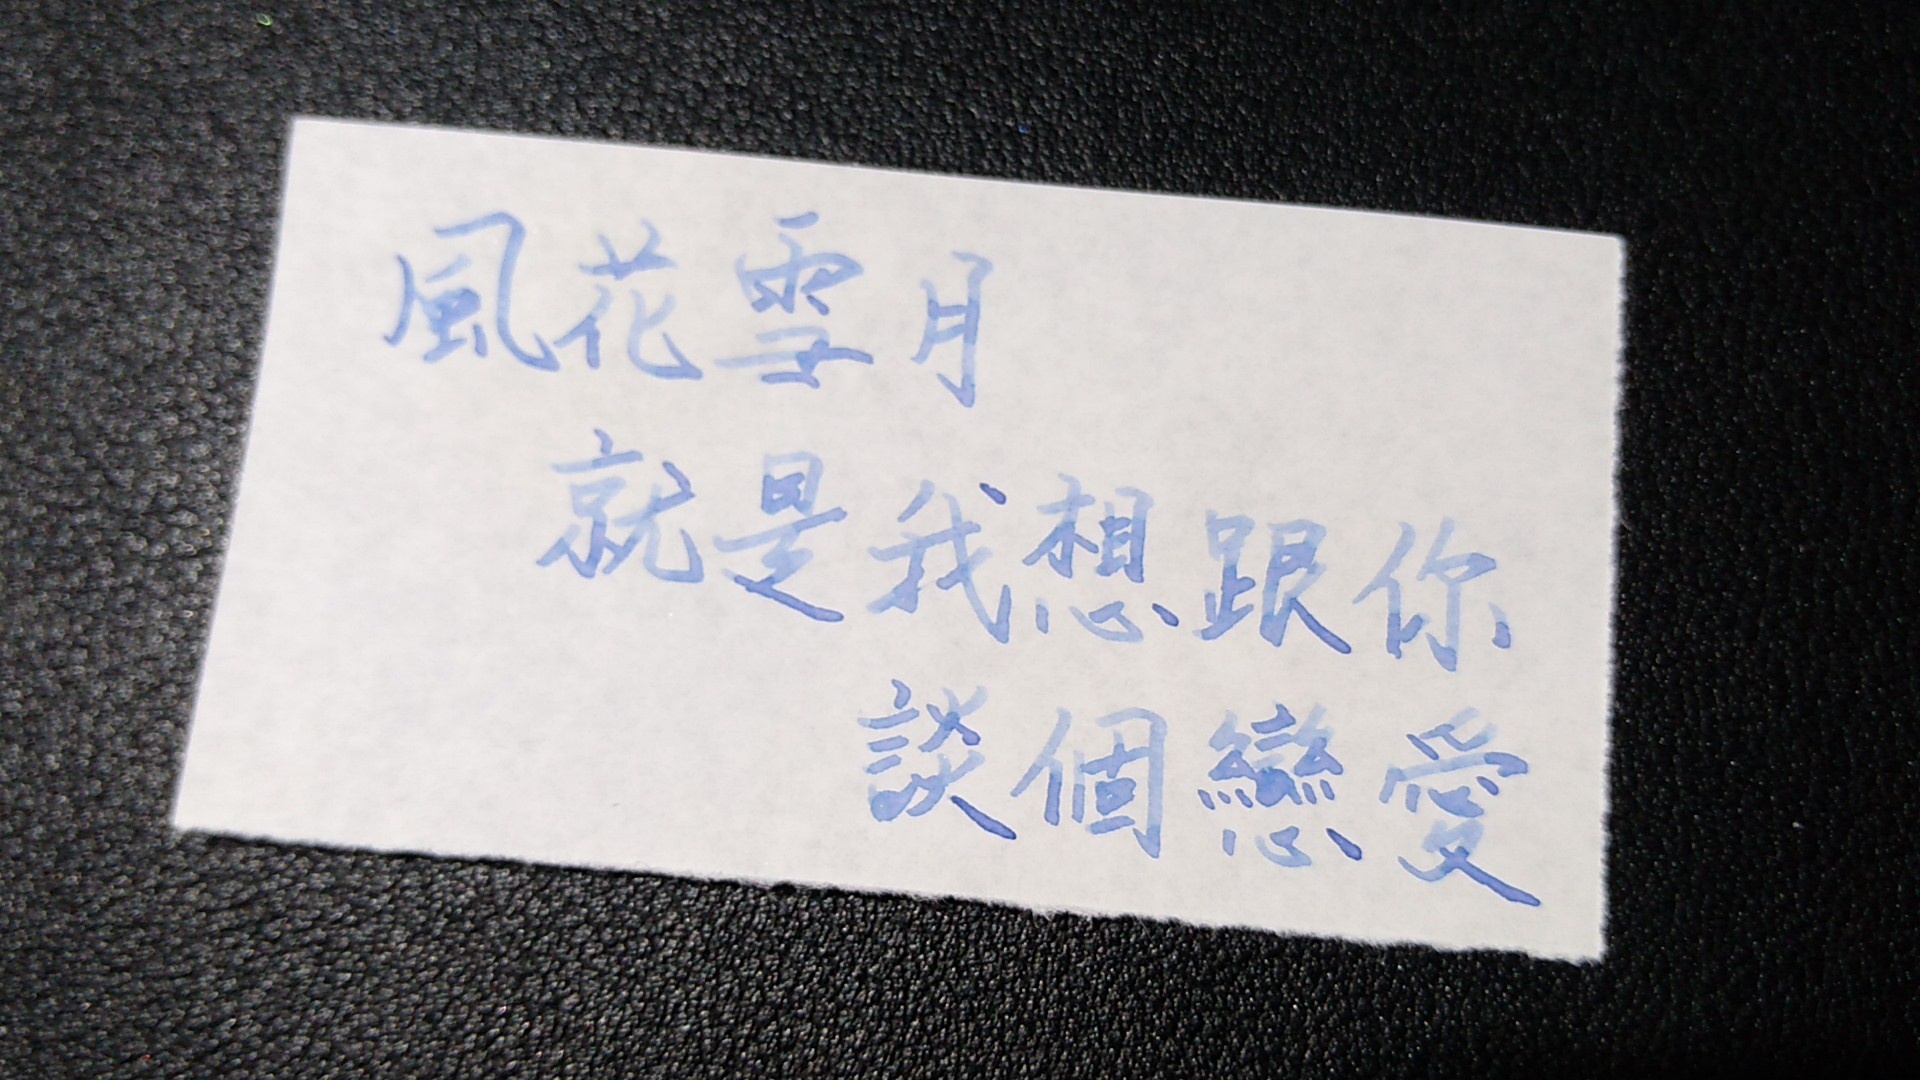 風花雪月
就是我想跟你
談個戀愛